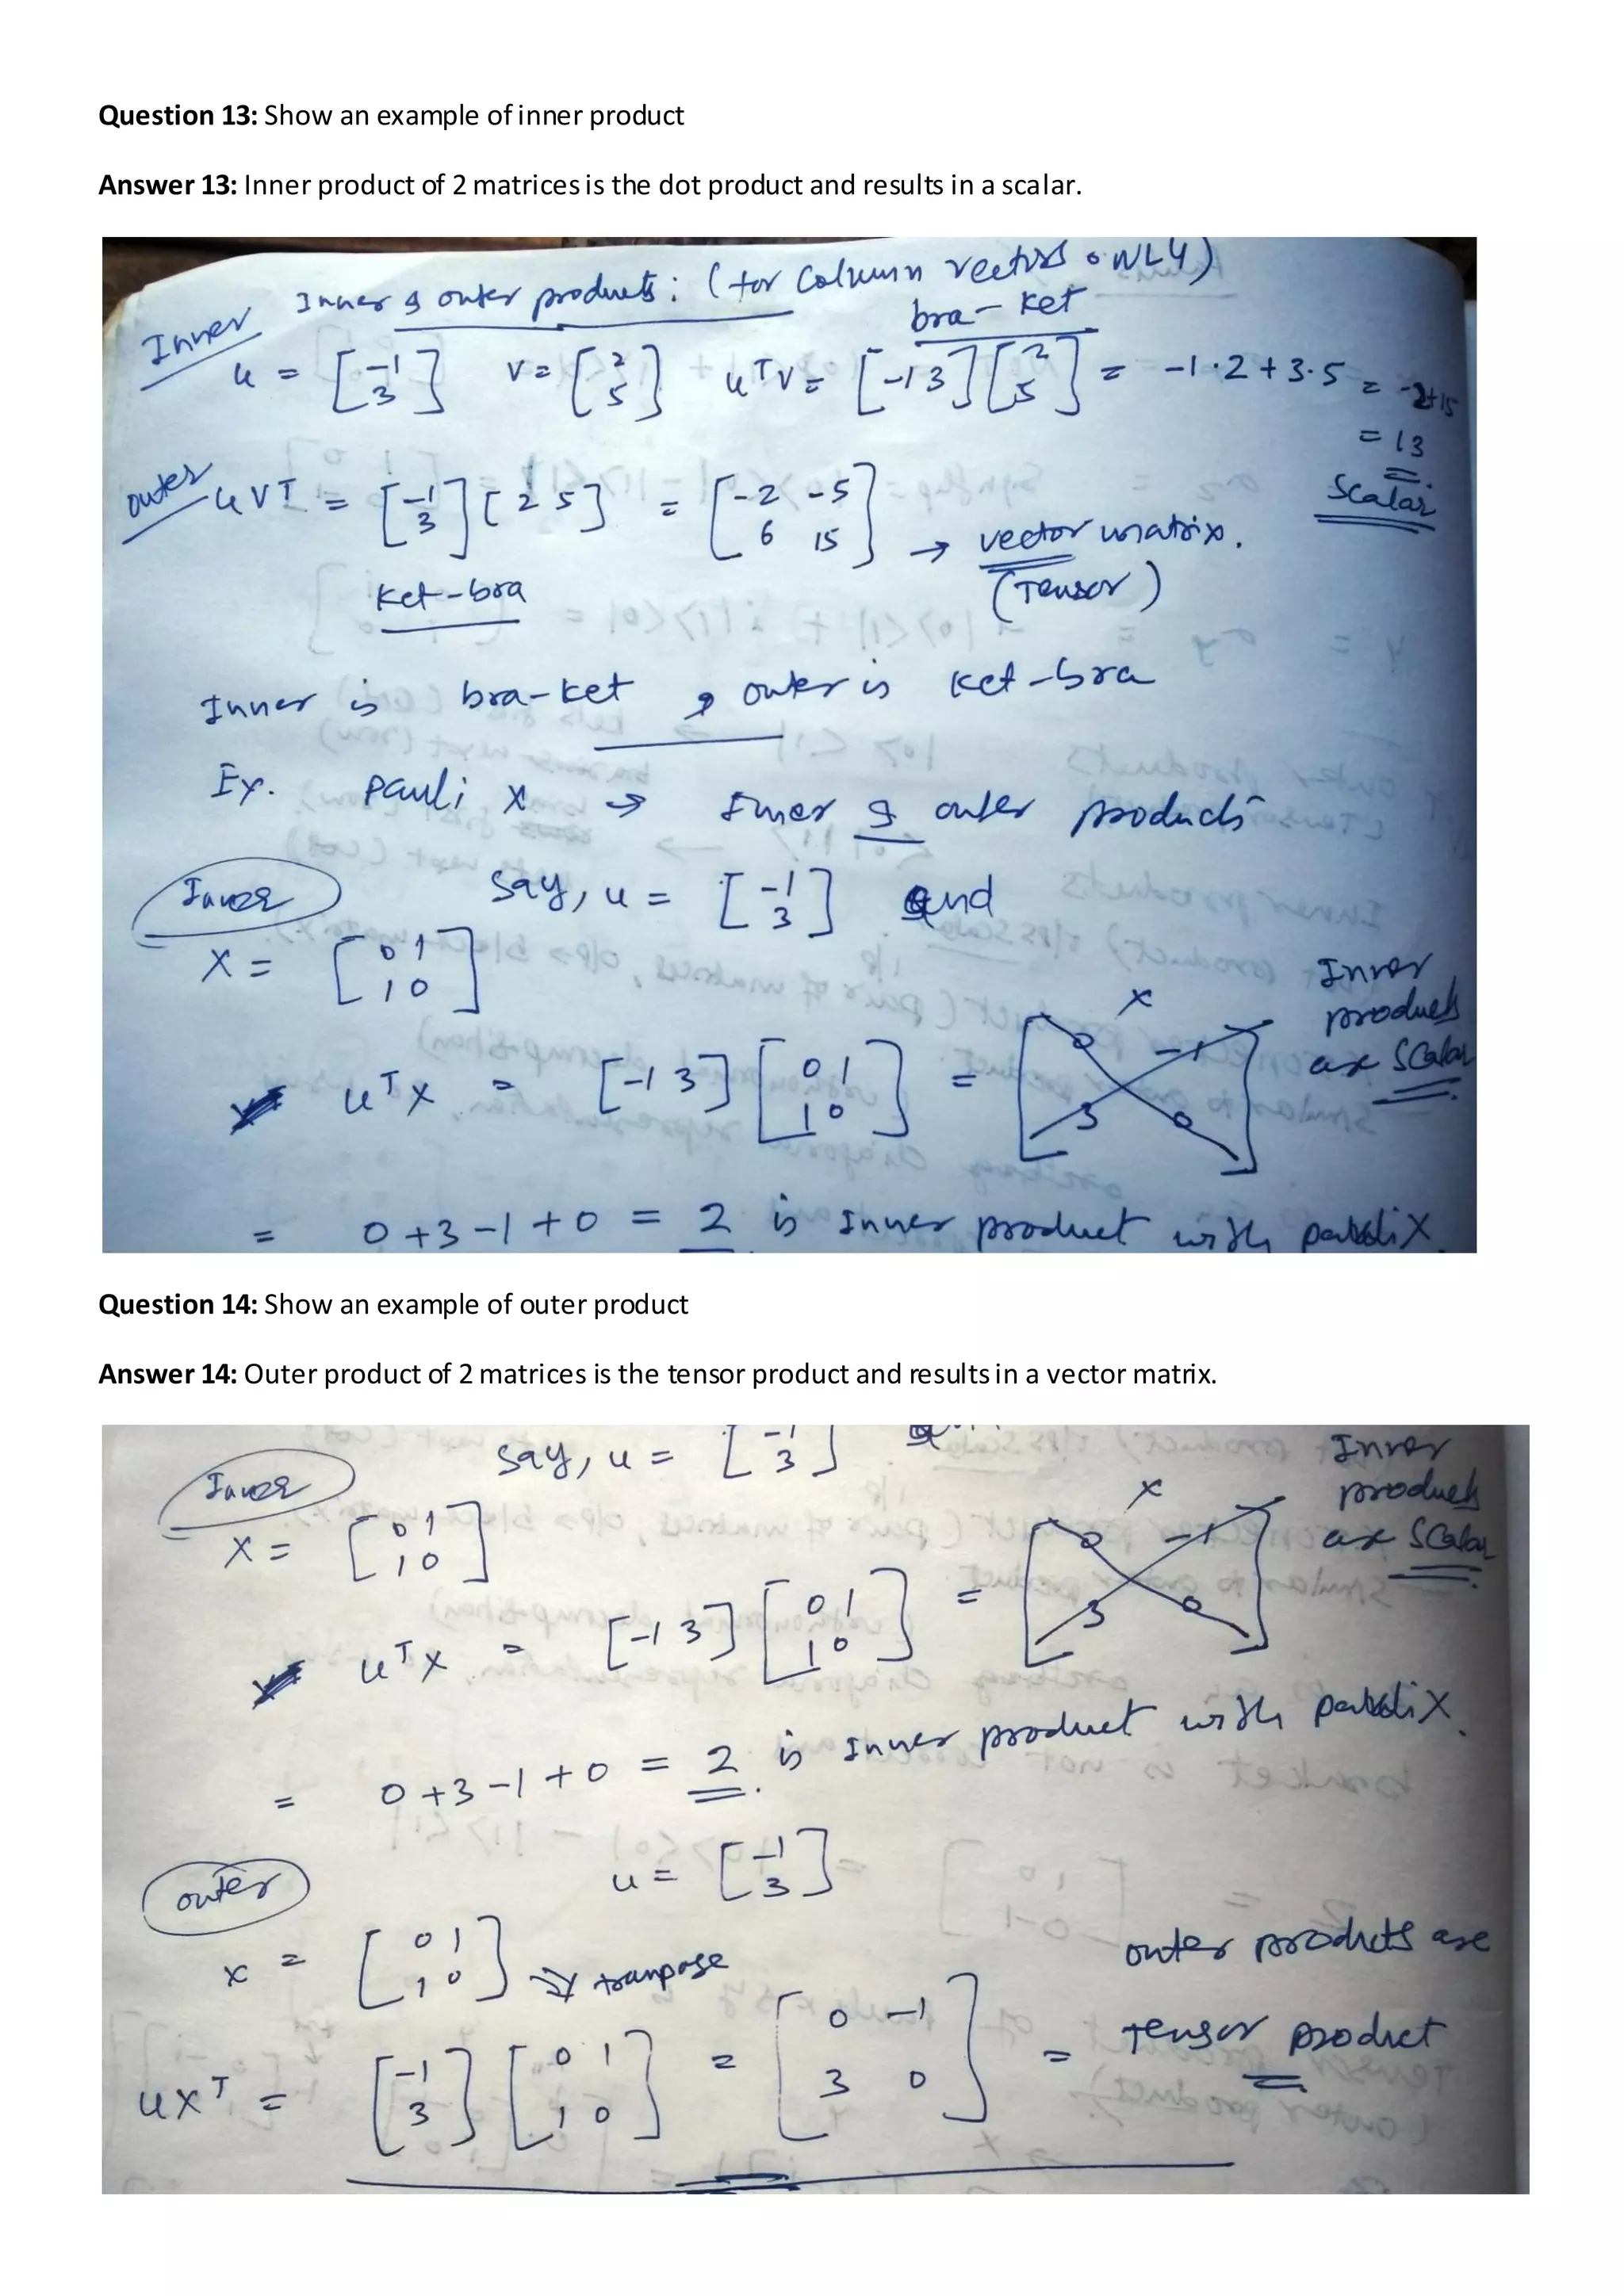 Question 13: Show an example of inner product
Answer 13: Inner product of 2 matrices is the dot product and results in a scalar.
Inner & outer products: (for Column vectors ONLY)
Inner
bra-ket
u = [-1 3] v = [2 5] uTv = [-1 3] [2 5] = -1·2 + 3·5 = -2+15
= 13
Scalar
outer
uvT = [-1 3] [2 5] = [-2 -5 6 15] → vector matrix.
(Tensor)
ket-bra
Inner is bra-ket & outer is ket-bra
Ex. Pauli X → Inner & outer products
Inner
say, u = [-1 3] and
X = [0 1 1 0]
Inner
products
are Scalar
X
uTX = [-1 3] [0 1 1 0] = [0 -1 3 0]
= 0+3-1+0 = 2 is Inner product with pauli X.
Question 14: Show an example of outer product
Answer 14: Outer product of 2 matrices is the tensor product and results in a vector matrix.
say, u = [-1 3]
Inner
X = [0 1 1 0]
Inner
products
are Scalar
X
uTX = [-1 3] [0 1 1 0] = [0 -1 3 0]
= 0+3-1+0 = 2 is Inner product with pauli X.
outer
u = [-1 3]
x = [0 1 1 0] transpose
outer products are
Tensor product
uXT = [-1 3] [0 1 1 0] = [0 -1 3 0] =